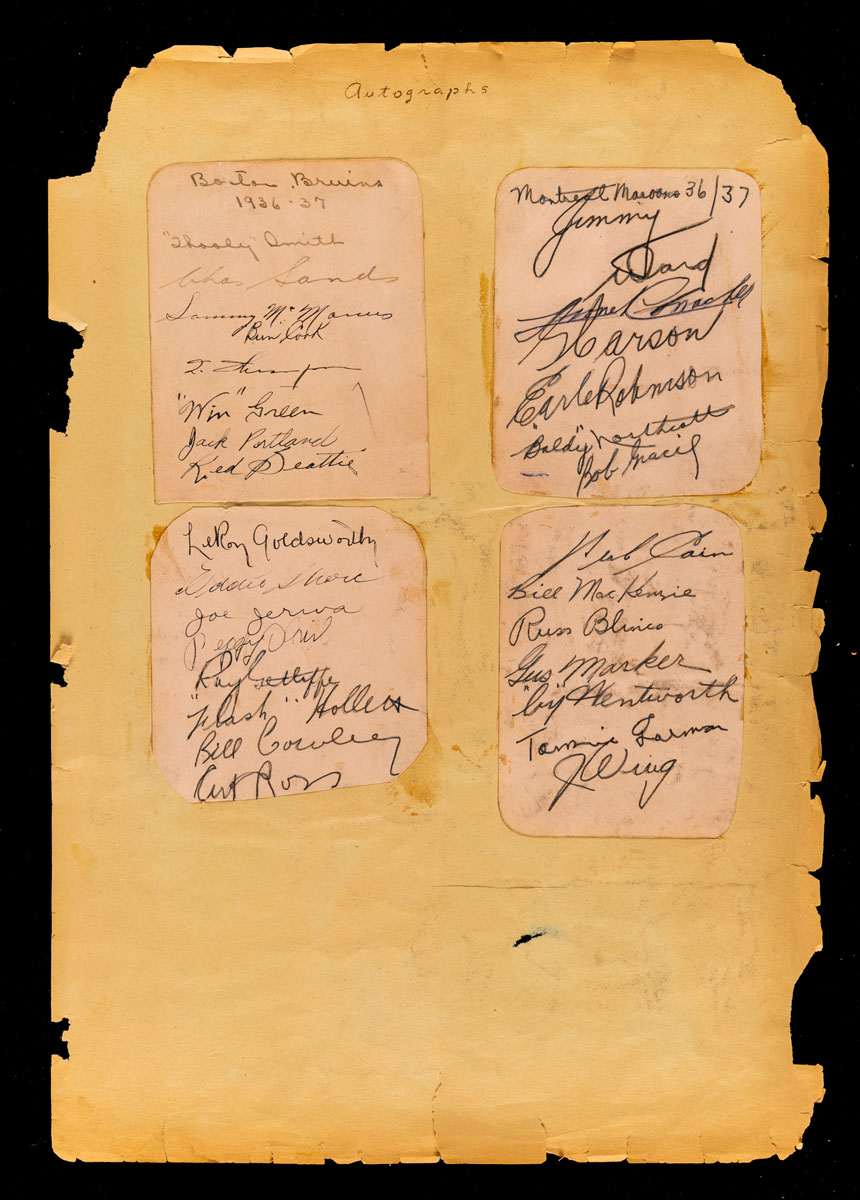 Autographs
Boston Bruins
1936-37
"Hooley" Smith
Chas Sands
Sammy McManus
Bun Cook
T. Thompson
"Win" Green
Jack Portland
Red Beattie
LeRoy Goldsworthy
Eddie Shore
Joe Jerwa
Peggy O'Neil
Ray Getliffe
"Flash" Hollett
Bill Cowley
Art Ross
Montreal Maroons 36/37
Jimmy
Ward
Lionel Conacher
Earle Robinson
"Baldy" Northcott
Bob Gracie
Herb Cain
Bill MacKenzie
Russ Blinco
Gus Marker
"Cy" Wentworth
Tommie Gorman